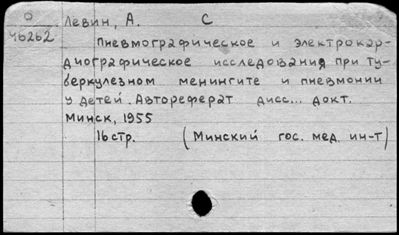 О Левин, А. С
46262
Пневмографическое и электрокар-
диографическое исследования при ту-
беркулезном менингите и пневмонии
у детей. Автореферат дисс... докт.
Минск, 1955
16 стр. (Минский гос. мед. ин-т)